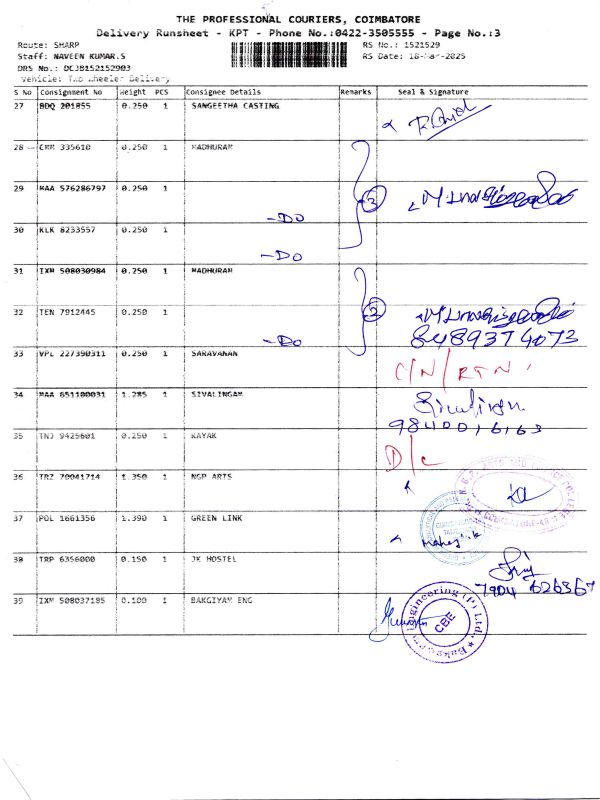 THE PROFESSIONAL COURIERS, COIMBATORE
Delivery Runsheet - KPT - Phone No.:0422-3505555 - Page No.:3
Route: SHARP
RS No.: 1521529
Staff: NAVEEN KUMAR.S
RS Date: 18-Mar-2025
DRS No.: DCJB152152903
Vehicle: Two Wheeler Delivery
S No Consignment No Weight PCS Consignee Details Remarks Seal & Signature
27 BDQ 201855 0.250 1 SANGEETHA CASTING
28 335610 0.250 1 MADHURAM
29 MAA 576286797 0.250 1
-DO 3
30 KLK 8233557 0.250 1
-DO
31 IXM 508030984 0.250 1 MADHURAM
32 TEN 7912445 0.250 1 2
-DO 8489374073
33 VPL 227390311 0.250 1 SARAVANAN
C/N/RTN
34 MAA 651100031 1.285 1 SIVALINGAM
9840016163
35 TNJ 9425601 0.250 1 KAYAK
D/C
36 TRZ 70041714 1.350 1 NGP ARTS
37 POL 1661356 1.390 1 GREEN LINK
38 TRP 6356000 0.150 1 JK HOSTEL
7904 626367
39 IXM 508037185 0.100 1 BAKGIYAM ENG
Engineering (P) Ltd.,
CBE